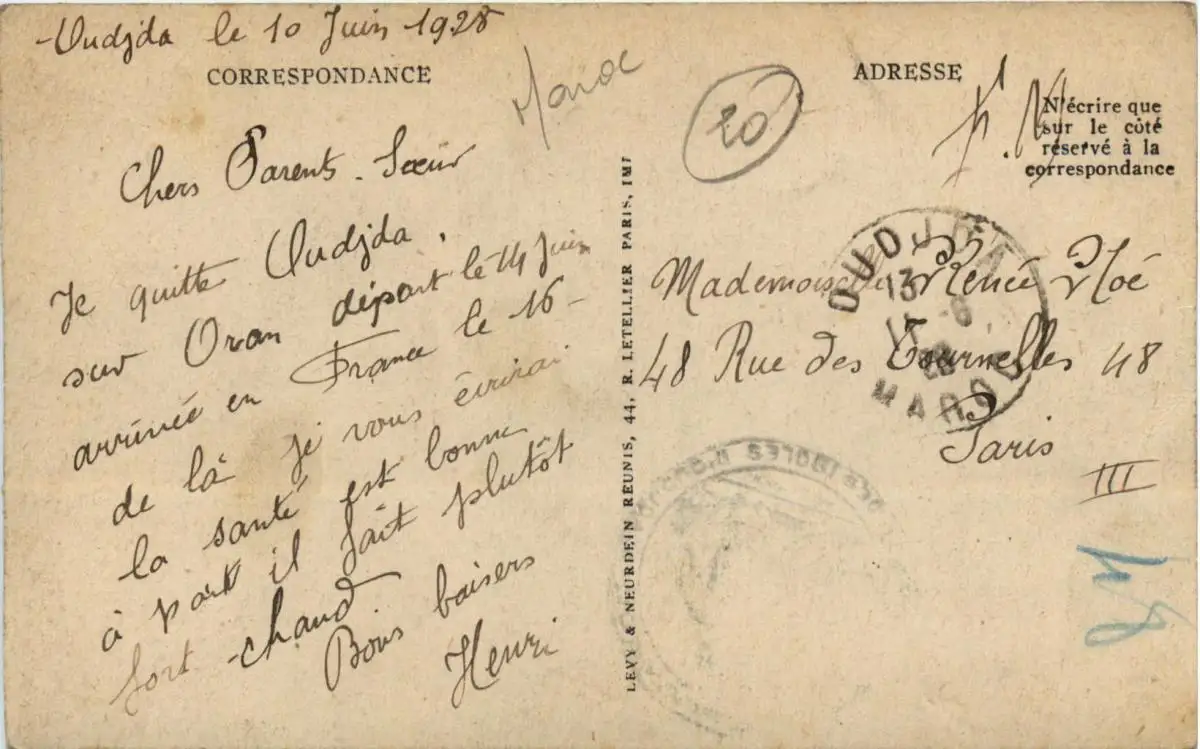 Oudjda le 10 Juin 1928
CORRESPONDANCE
Maroc
Chers Parents. Sœur
Je quitte Oudjda,
sur Oran départ le 14 Juin
arrivée en France le 16-
de là je vous écrirai
la santé est bonne
à part il fait plutôt
fort chaud
Bons baisers
Henri
LEVY & NEURDEIN RÉUNIS, 44, R. LETELLIER PARIS, IMP
20
ADRESSE
F. M
N'écrire que
sur le côté
réservé à la
correspondance
OUDJDA
13
6
28
MAROC
Mademoiselle Renée Noé
48 Rue des Tournelles 48
Paris
III